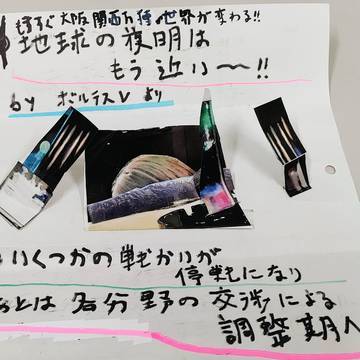 もうすぐ大阪関西万博世界が変わる!!
地球の夜明けは
もう近い〜!!
by ボルテスV より
いくつかの戦かいが
停戦になり
あとは各分野の交渉による
調整期へ